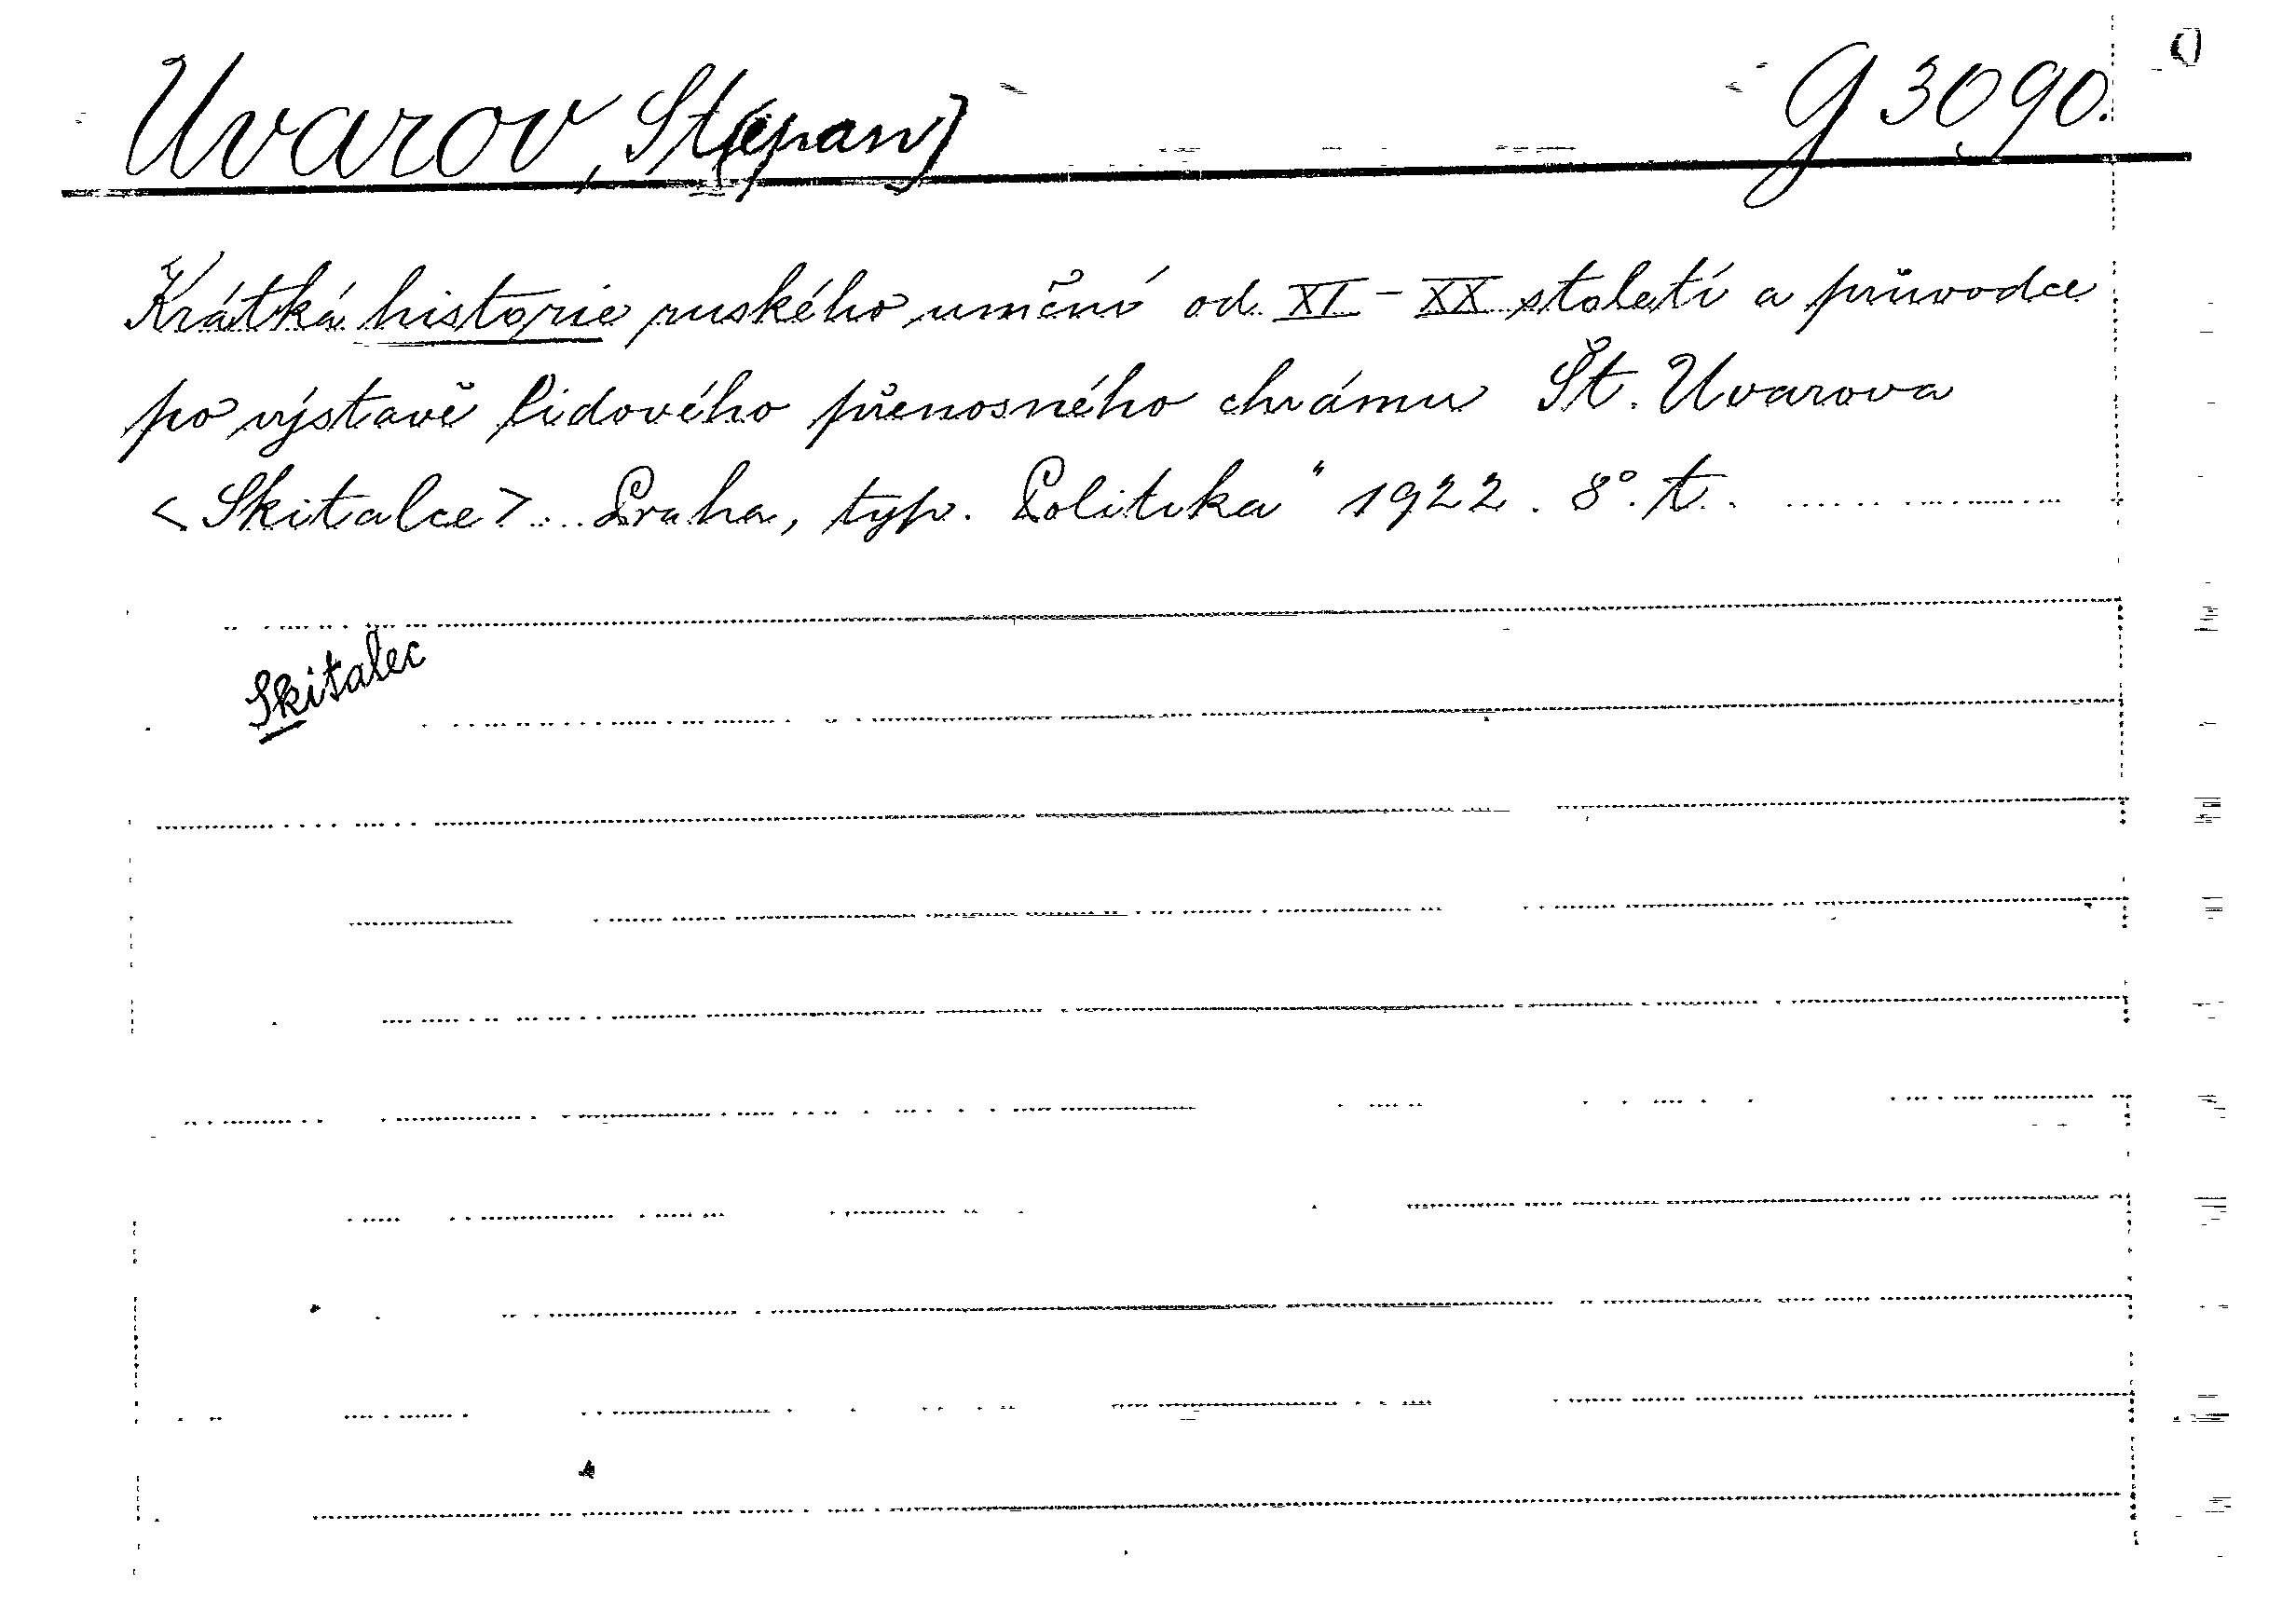 Uvarov, St[epan] G 3090.
Krátká historie ruského umění od XI - XX století a průvodce
po výstavě lidového přenosného chrámu Št. Uvarova
<Skitalce> Praha, typ. Politika" 1922. 8°. t.
Skitalec